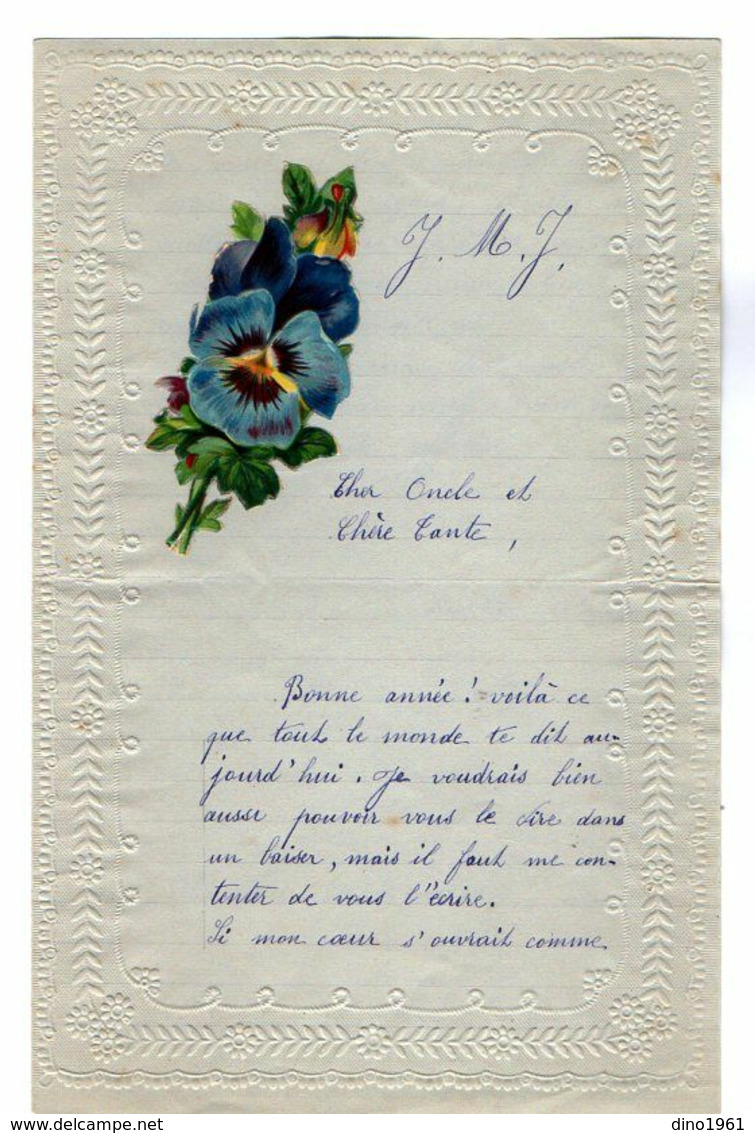 J. M. J.
Cher Oncle et
Chère Tante,
Bonne année! voilà ce
que tout le monde te dit au-
jourd'hui. Je voudrais bien
aussi pouvoir vous le dire dans
un baiser, mais il faut me con-
tenter de vous l'écrire.
Si mon cœur s'ouvrait comme
delcampe.net
dino1961